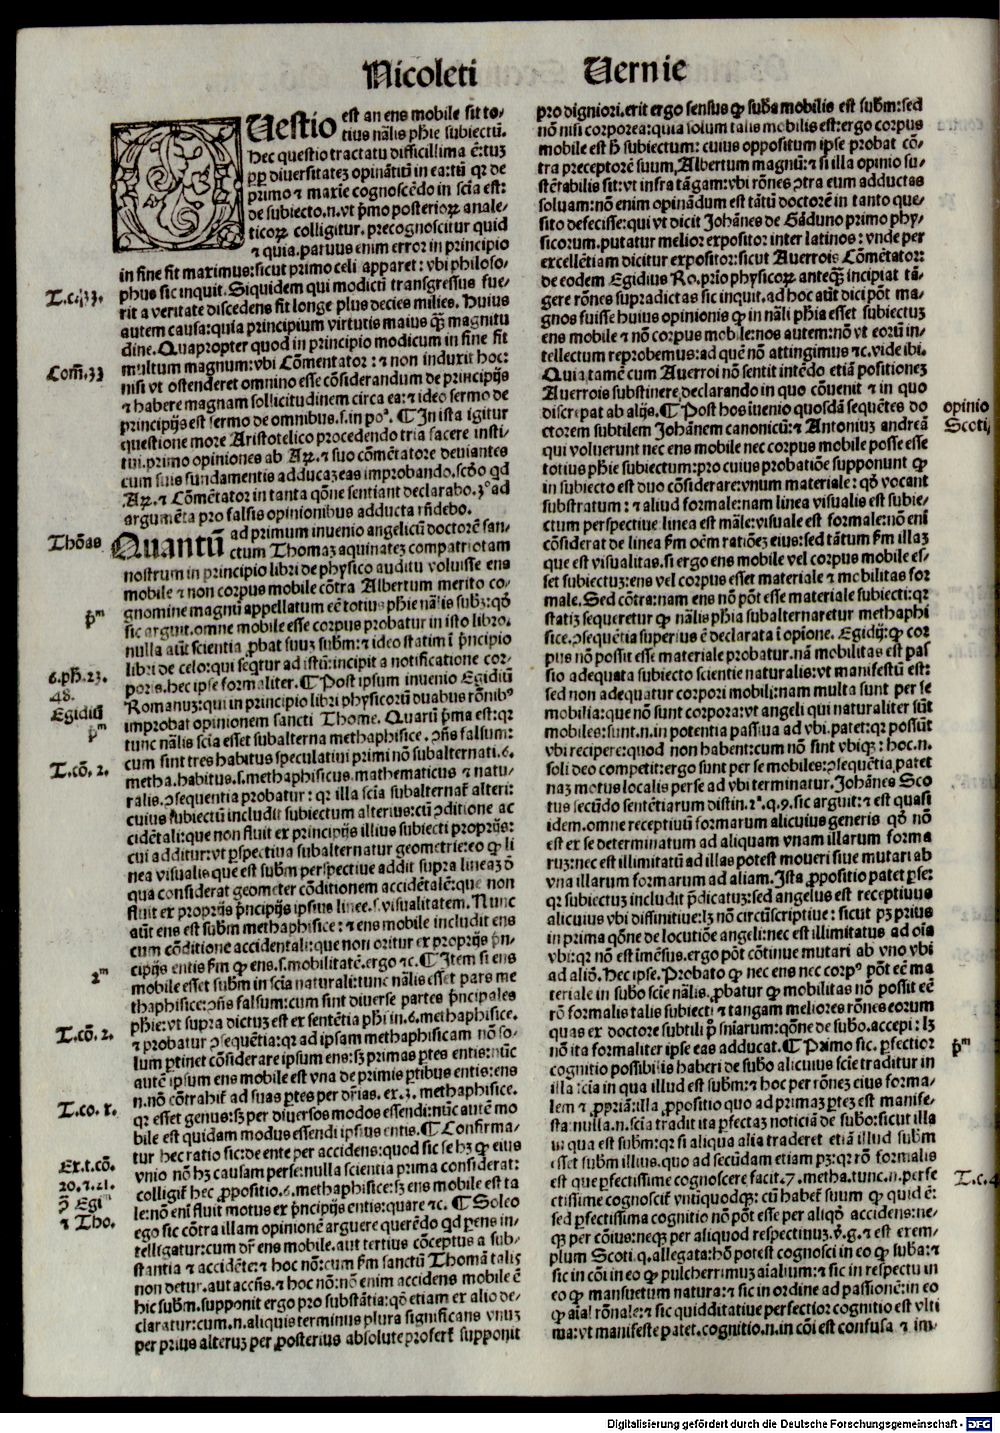 Nicoleti Vernie
QUestio est an ens mobile sit to⸗
tius nãlis phie subiectũ.
Hec questio tractatu difficillima ē: tuz
ꝓpter diuersitatez opinãtiũ in ea: tũ qr de
primo ⁊ maxie cognoscẽdo in scia est:
de subiecto .n. vt pͥmo posterioꝝ anale⸗
ticoꝝ colligitur. precognoscitur quid
⁊ quia. paruus enim error in principio
in fine fit maximus: sicut primo celi apparet: vbi philoso⸗
phus sic inquit. Siquidem qui modicũ transgressus fue⸗
rit a veritate discedens fit longe plus decies milies. Huius
autem causa: quia principium virtutis maius qͣ̃ magnitu
dine. Quapropter quod in principio modicum in fine fit
multum magnum: vbi Cõmentator: ⁊ non induxit hoc:
nisi vt ostenderet omnino esse cõsiderandum de principijs
⁊ habere magnam sollicitudinem circa ea: ⁊ ideo sermo de
principijs est sermo de omnibus .s. in poᵃ. ¶ In ista igitur
questione more Aristotelico procedendo tria facere insti⸗
tui. primo opiniones ab Aꝝ. ⁊ suo cõmẽtatore deuiantes
cum suis fundamentis adducã: eas improbando. scđo qđ
Aꝝ. ⁊ Cõmẽtator in tanta qõne sentiant declarabo. 3° ad
argumẽta pro falsis opinionibus adducta rñdebo.
QUantũ ad primum inuenio angelicũ doctorẽ san⸗
ctum Thomaz aquinatez compatriotam
nostrum in principio libri de physico auditu voluisse ens
mobile ⁊ non corpus mobile cõtra Albertum merito co⸗
gnomine magnũ appellatum eẽ totius phie nãlis subz: qđ
sic arguit. omne mobile esse corpus probatur in isto libro.
nulla aũt scientia ꝓbat suuz subm: ⁊ ideo statim ĩ pͥncipio
libri de celo: qui seqͣtur ad istũ: incipit a notificatione cor⸗
poris. hec ipse formaliter. ¶ Post ipsum inuenio Egidiũ
Romanuz: qui in principio libri physicorũ duabus rõnibꝰ
improbat opinionem sancti Thome. Quarũ pͥma est: qr
tunc nãlis scia esset subalterna methaphisice. ↄñs falsum:
cum sint tres habitus speculatiui primi nõ subalternati. 6.
metha. habitus .s. methaphisicus. mathematicus ⁊ natu⸗
ralis. ↄsequentia probatur: qr illa scia subalternat̃ alteri:
cuius subiectũ includit subiectum alterius: cũ ↄditione ac
cidẽtali: que non fluit ex principijs illius subiecti proprijs:
cui additur: vt ꝑspectiua subalternatur geometrie: eo ꝙ li
nea visualis que est subm perspectiue addit supra lineaz ᵭ
qua considerat geometer cõditionem accidẽtalẽ: que non
fluit ex proprijs pͥncipijs ipsius linee .s. visualitatem. Nunc
aũt ens est subm methaphisice: ⁊ ens mobile includit ens
cum cõditione accidentali: que non oritur ex proprijs pͥn⸗
cipijs entis fm ꝙ ens .s. mobilitatẽ. ergo ⁊c. ¶ Item si ens
mobile esset subm in scia naturali: tunc nãlis esset pars me
thaphisice: ↄñs falsum: cum sint diuerse partes pͥncipales
phie: vt supra dictuz est ex sentẽtia phi in .6. methaphisice.
⁊ probatur ↄsequẽtia: qr ad ipsam methaphisicam nõ so⸗
lum ꝑtinet cõsiderare ipsum ens: sꝫ primas ꝑtes entis: nũc
autẽ ipsum ens mobile est vna de primis ꝑtibus entis: ens
.n. nõ cõtrahit̃ ad suas ꝑtes per dr̃ias. ex .3. methaphisice.
qr esset genus: sꝫ per diuersos modos essendi: nũc autẽ mo
bile est quidam modus essendi ipsius entis. ¶ Confirma⸗
tur hec ratio sic: de ente per accidens: quod sic se hꝫ ꝙ eius
vnio nõ hꝫ causam per se: nulla scientia prima considerat:
colligit̃ hec ꝓpositio .6. methaphisice: sꝫ ens mobile est ta
le: nõ enĩ fluit motus ex pͥncipijs entis: quare ⁊c. ¶ Soleo
ego sic cõtra illam opinionẽ arguere querẽdo qđ ꝑ ens in⸗
telligatur: cum dr̃ ens mobile. aut tertius cõceptus a sub⸗
stantia ⁊ accidẽte: ⁊ hoc nõ: cum fm sanctũ Thomã talis
non detur. aut accñs. ⁊ hoc nõ: nõ enim accidens mobile ẽ
hic subm. supponit ergo pro substãtia: qđ etiam ex alio de⸗
claratur: cum .n. aliquis terminus plura significans vnuz
per prius alteruz per ꝓsterius absolute profert̃ supponit
pro digniori. erit ergo sensus ꝙ suba mobilis est subm: sed
nõ nisi corporea: quia solum talis mobilis est: ergo corpus
mobile est hͦ subiectum: cuius oppositum ipse probat cõ⸗
tra preceptorẽ suum, Albertum magnũ: ⁊ si illa opinio su⸗
stẽtabilis sit: vt infra tãgam: vbi rõnes ↄtra eum adductas
soluam: nõ enim opinãdum est tãtũ doctorẽ in tanto que⸗
sito defecisse: qui vt dicit Johãnes de Gãduno primo phy⸗
sicorum. putatur melior expositor inter latinos: vnde per
excellẽtiam dicitur expositor: sicut Auerrois Cõmẽtator:
de eodem Egidius Ro. pͥrio physicoꝝ anteqͣ̃ incipiat tã⸗
gere rõnes supradictas sic inquit. ad hoc aũt dici põt ma⸗
gnos fuisse huius opinionis ꝙ in nãli phia esset subiectuz
ens mobile ⁊ nõ corpus mobile: nos autem: nõ vt eorũ in⸗
tellectum reprobemus: ad quẽ nõ attingimus ⁊c. vide ibi.
Quia tamẽ cum Auerroi nõ sentit intẽdo etiã positionez
Auerrois substinere declarando in quo cõuenit ⁊ in quo
discrepat ab alijs. ¶ Post hos iuenio quosdã sequẽtes do
ctorem subtilem Johãnem canonicũ: ⁊ Antoniuz andreã
qui voluerunt nec ens mobile nec corpus mobile posse esse
totius phie subiectum: pro cuius probatiõe supponunt ꝙ
in subiecto est duo cõsiderare: vnum materiale: qđ vocant
substratum: ⁊ aliud formale: nam linea visualis est subie⸗
ctum perspectiue linea est mãle: visuale est formale: nõ enĩ
cõsiderat de linea fm oẽm ratiõez eius: sed tãtum fm illaz
que est visualitas. si ergo ens mobile vel corpus mobile es⸗
set subiectuz: ens vel corpus esset materiale ⁊ mobilitas for
male. Sed cõtra: nam ens nõ põt esse materiale subiecti: qr
statiz sequeretur ꝙ nãlis phia subalternaretur methaphi
sice. ↄsequẽtia superius ẽ declarata ĩ opione. Egidij: ꝙ cor
pus nõ possit esse materiale probatur. nã mobilitas est pas
sio adequata subiecto scientie naturalis: vt manifestũ est:
sed non adequatur corpori mobili: nam multa sunt per se
mobilia: que nõ sunt corpora: vt angeli qui naturaliter sũt
mobiles: sunt .n. in potentia passiua ad vbi. patet: qr possũt
vbi recipere: quod non habent: cum nõ sint vbiqꝫ: hoc .n.
soli deo competit: ergo sunt per se mobiles: ↄsequẽtia patet
naz motus localis per se ad vbi terminatur. Johãnes Sco
tus secũdo sentẽtiarum distin. 2ᵃ. q. 9. sic arguit: ⁊ est quasi
idem. omne receptiuũ formarum alicuius generis qđ nõ
est ex se determinatum ad aliquam vnam illarum forma
ruz: nec est illimitatũ ad illas potest moueri siue mutari ab
vna illarum formarum ad aliam. Ista ꝓpositio patet ꝑ se:
qr subiectuz includit pͥdicatuz: sed angelus est receptiuus
alicuius vbi diffinitiue: lꝫ nõ circũscriptiue: sicut pꝫ prius
in prima qõne de locutiõe angeli: nec est illimitatus ad oia
vbi: qr nõ est imẽsus. ergo põt cõtinue mutari ab vno vbi
ad aliõ. Hec ipse. Probato ꝙ nec ens nec corpꝰ põt eẽ ma
teriale in subo scie nãlis. ꝓbatur ꝙ mobilitas nõ possit eẽ
rõ formalis talis subiecti ⁊ tangam meliores rõnes eorum
quas ex doctore subtili pͦ sniarum: qõne de subo. accepi: lꝫ
nõ ita formaliter ipse eas adducat. ¶ Primo sic. ꝑfectior
cognitio possibilis haberi de subo alicuius scie traditur in
illa scia in qua illud est subm: ⁊ hoc per rõnez eius forma⸗
lem ⁊ ꝓpriã: illa ꝓpositio quo ad primaz ꝑtez est manife⸗
sta: nulla .n. scia tradit ita ꝑfectaz noticiã de subo: sicut illa
in qua est subm: qr si aliqua alia traderet etiã illud subm
esset subm illius. quo ad secũdam etiam pꝫ: qr rõ formalis
est que ꝑfectissime cognoscere facit .7. metha. tunc .n. perfe
ctissime cognoscit̃ vnũquodqꝫ: cũ habet̃ suum ꝙ quid ẽ:
sed ꝑfectissima cognitio nõ põt esse per aliqđ accidens: ne⸗
qꝫ per cõius: neqꝫ per aliquod respectiuuz. v̓. g. ⁊ est exem⸗
plum Scoti. q. allegata: hõ potest cognosci in eo ꝙ suba: ⁊
sic in cõi in eo ꝙ pulcherrimuz aialium: ⁊ sic in respectu in
eo ꝙ mansuetum natura: ⁊ sic in ordine ad passionẽ: in eo
ꝙ aial rõnale: ⁊ sic quidditatiue perfectior cognitio est vlti
ma: vt manifeste patet. cognitio .n. in cõi est confusa ⁊ im⸗
T.c.33.
Com̃.33
Thõas
pͫ
6. ph. 23.
48.
Egidiũ
pͫ
T.cõ. 2.
2ᵐ
T.cõ. 2.
T.co. x.
Ex.t.cõ.
20.⁊.21.
ↄ̃ Egiᵐ
⁊ Tho.
opinio
Scoti,
pͫ
T.c.4
Digitalisierung gefördert durch die Deutsche Forschungsgemeinschaft - DFG